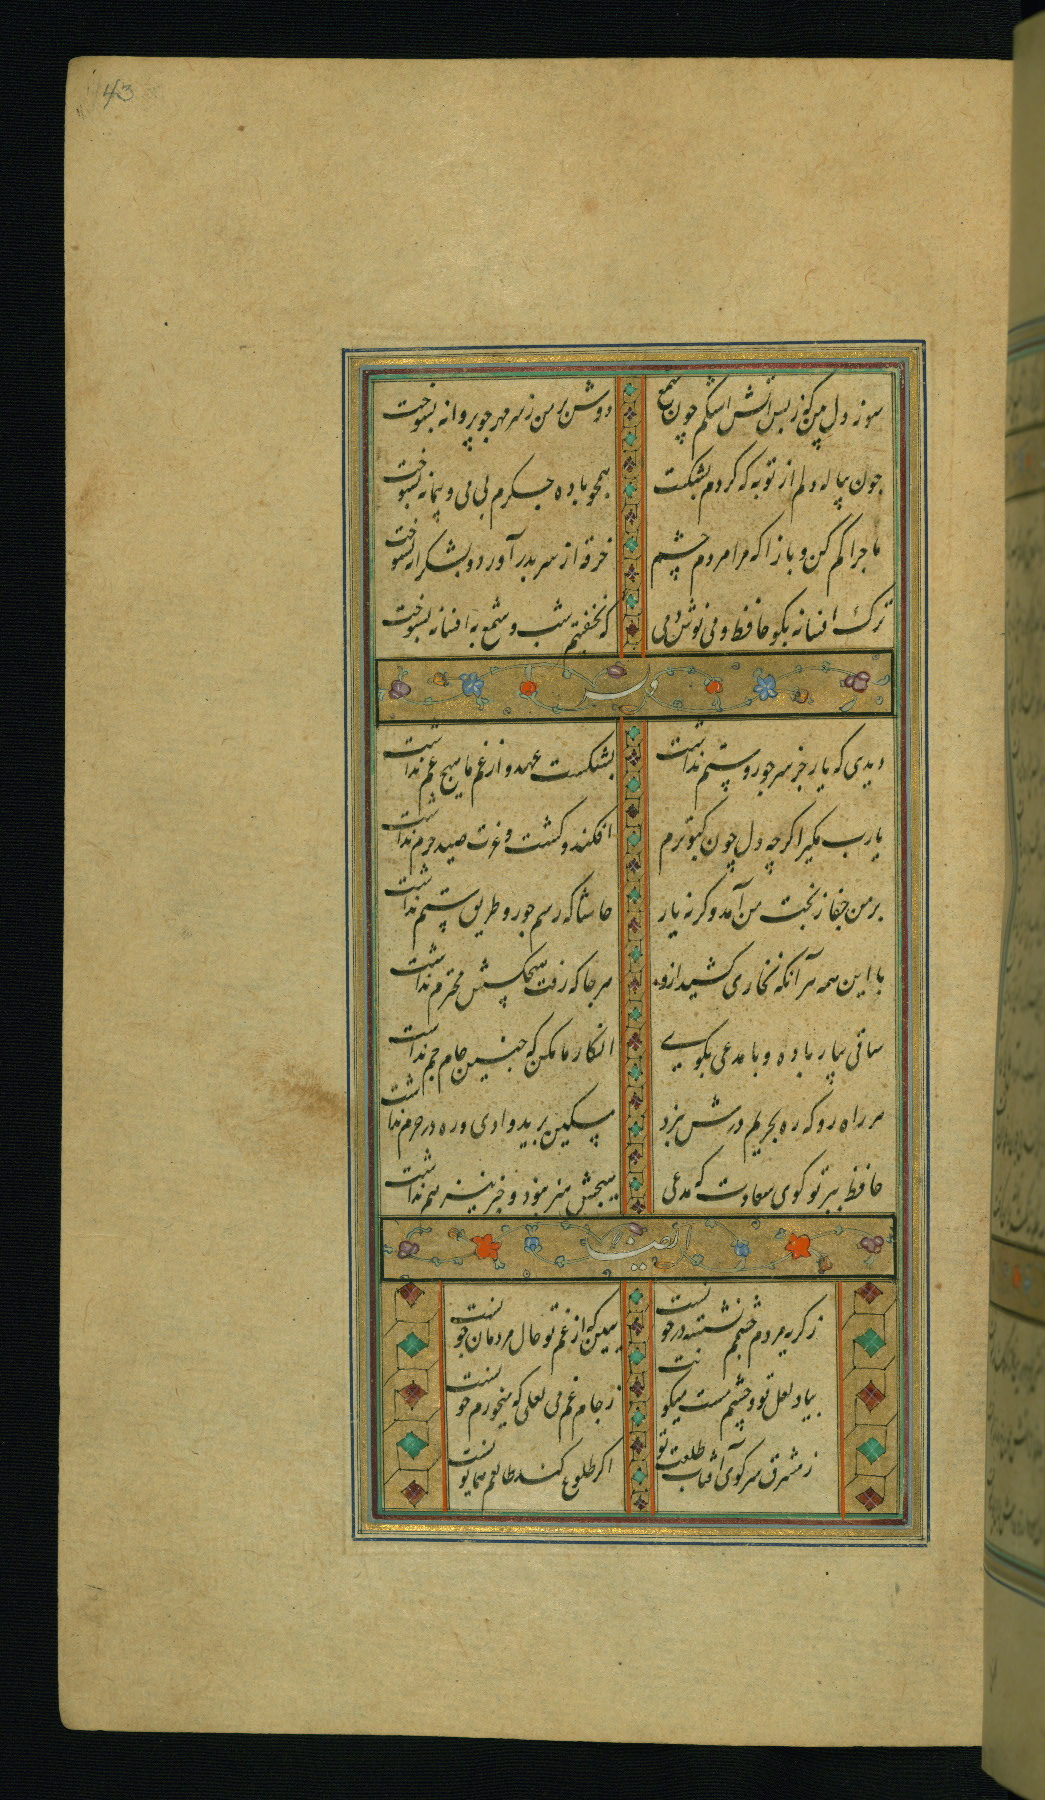 43
سوز دل بین که ز بس آتش اشکم چون شمع
دوش بر من ز سر مهر چو پروانه بسوخت
چون پیاله دلم از توبه که کردم بشکست
همچو باده جگرم بی می و پیمانه بسوخت
ماجرا کم کن و باز آ که مرا مردم چشم
خرقه از سر بدر آورد و بشکرانه بسوخت
ترک افسانه بگو حافظ و می نوش دمی
که نخفتیم شب و شمع به افسانه بسوخت
وله
دیدی که یار جز سر جور و ستم نداشت
بشکست عهد و از غم ما هیچ غم نداشت
یارب مگیر اگر چه دل چون کبوترم
افکند و کشت و عزت صید حرم نداشت
بر من جفا ز بخت من آمد وگرنه یار
حاشا که رسم جور و طریق ستم نداشت
با این همه هر آنکه نه خواری کشید ازو
هر جا که رفت هیچکسش محترم نداشت
ساقی بیار باده و با مدعی بگوی
انکار ما مکن که چنین جام جم نداشت
هر راه رو که ره بحریم درش نبرد
مسکین برید وادی و ره در حرم نداشت
حافظ ببر تو گوی سعادت که مدعی
هیچش هنر نبود و خبر نیز هم نداشت
ایضا
ز گریه مردم چشمم نشسته در خونست
ببین که از غم تو حال مردمان چونست
بیاد لعل تو و چشم مست میگونت
ز جام غم می لعلی که میخورم خونست
ز مشرق سر کوی آفتاب طلعت تو
اگر طلوع کند طالعم همایونست